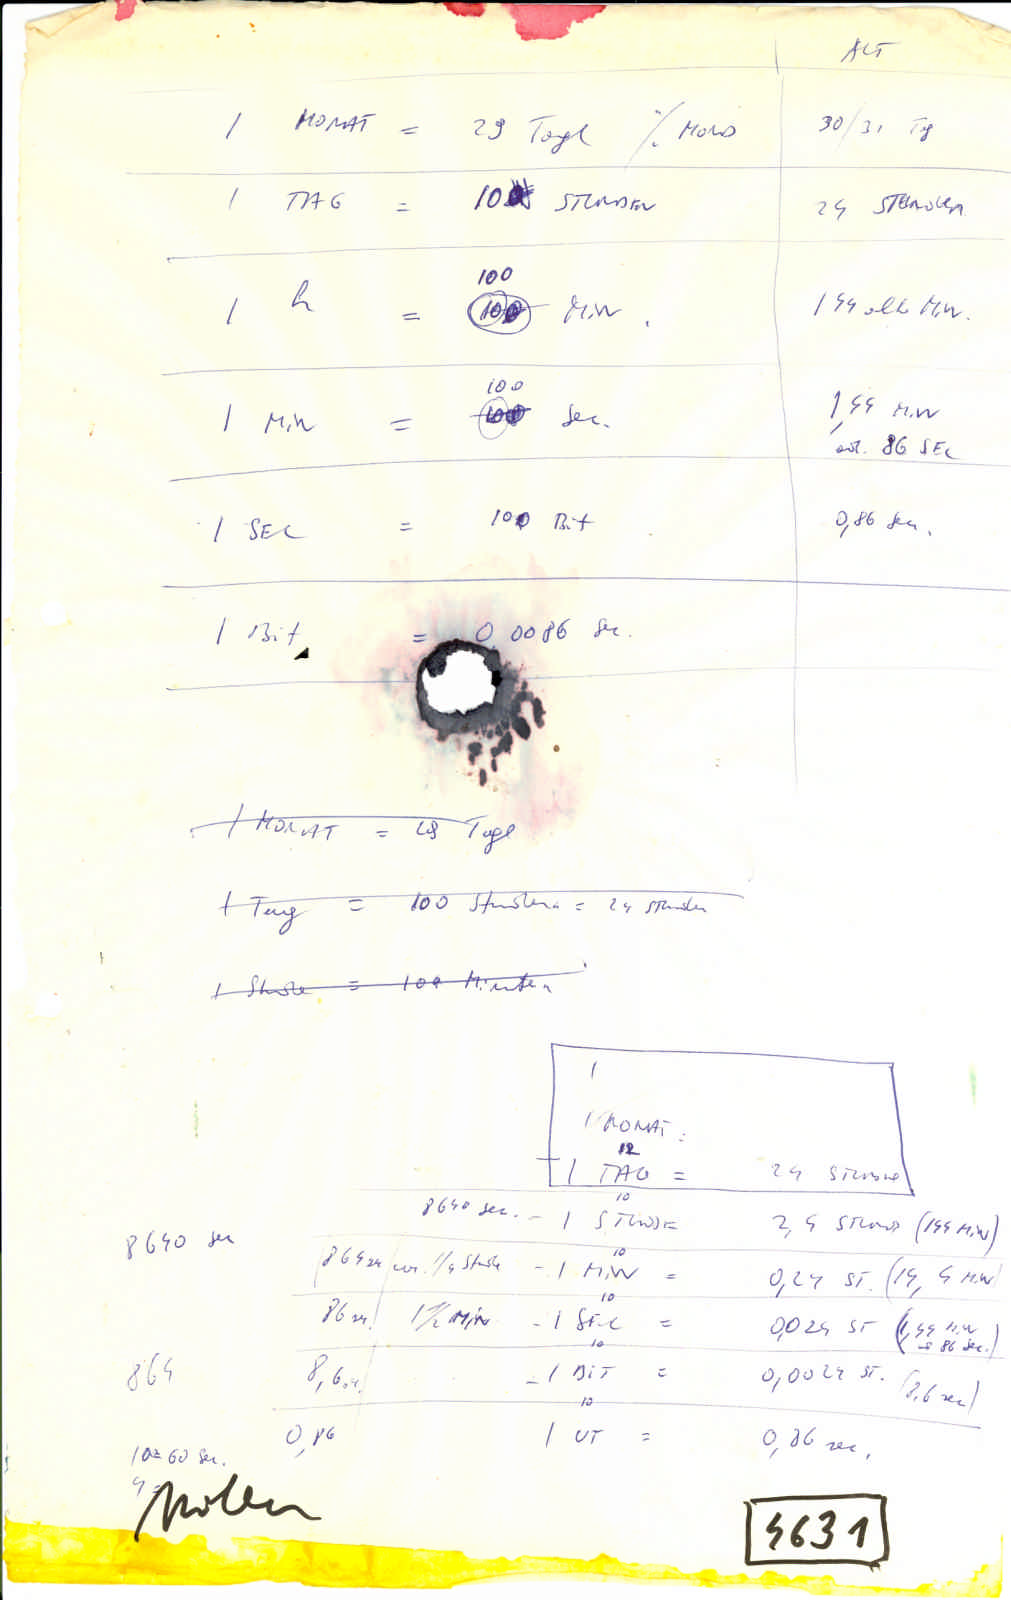 ALT
1 MONAT = 29 Tage ./. MOND 30/31 Tg
1 TAG = 10 STUNDEN 24 STUNDEN
100
1 h = 100 MiN. 144 alte MiN.
100
1 MiN = 100 Sec. 1,44 MiN
od. 86 SEC
1 SEC = 100 Bit 0,86 Sec.
1 Bit = 0,0086 Sec.
1 MONAT = 29 Tage
1 Tag = 100 Stunden = 24 Stunden
1 Stunde = 100 Minuten
1
1 MONAT:
12
1 TAG = 24 STUNDEN
10
8640 sec. - 1 STUNDE 2,4 STUND (144 MiN)
8640 sec
10
864 sec 1/4 Stunde - 1 MiN = 0,24 ST. (14,4 MiN
10
86 sec. 1 1/2 MiN. - 1 SEC = 0,024 ST (1,44 MiN
= 86 sec.)
10
864 8,6 sec. - 1 BiT = 0,0024 ST. (8,6 sec)
10
0,86 1 UT = 0,86 sec.
10 = 60 Sec.
4 =
4631